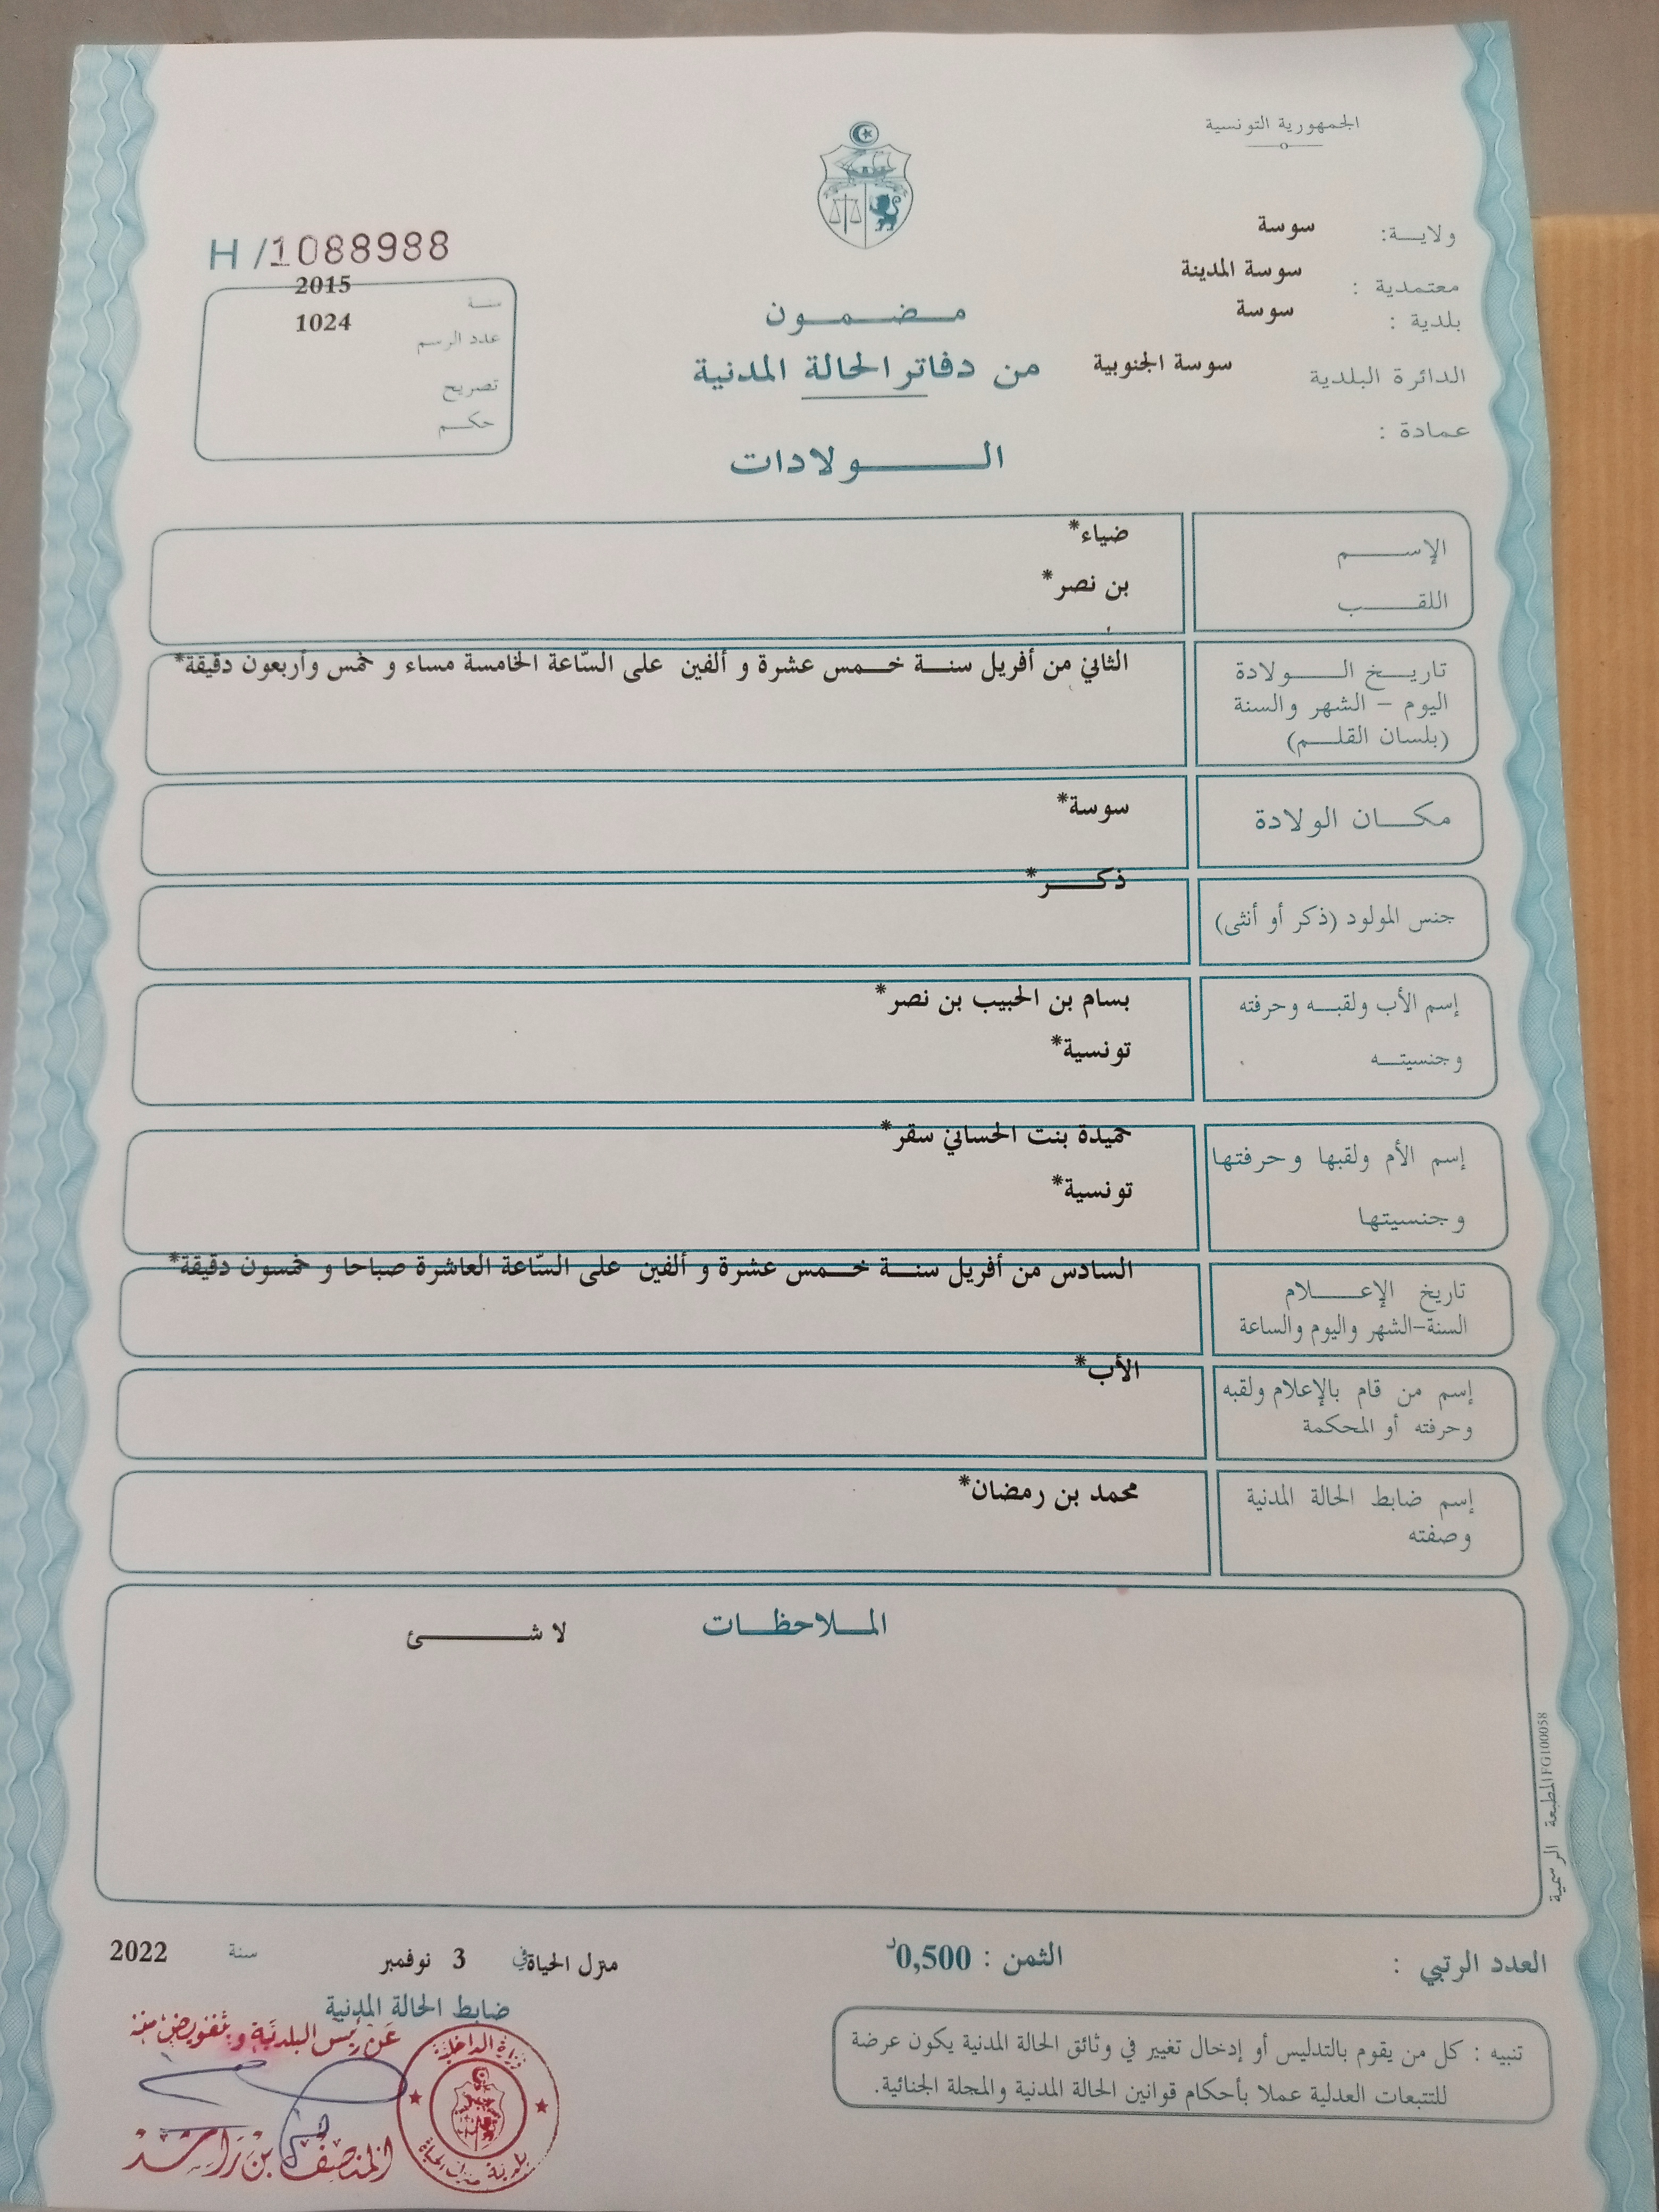 الجمهورية التونسية
ولاية: سوسة
معتمدية : سوسة المدينة
بلدية : سوسة
الدائرة البلدية سوسة الجنوبية
عمادة :
مضمون
من دفاتر الحالة المدنية
الولادات
H /1088988
سنة 2015
عدد الرسم 1024
تصريح
حكم
الإسم ضياء*
اللقب بن نصر*
تاريخ الولادة الثاني من أفريل سنة خمس عشرة و ألفين على السّاعة الخامسة مساء و خمس وأربعون دقيقة*
اليوم - الشهر والسنة
(بلسان القلم)
مكان الولادة سوسة*
جنس المولود (ذكر أو أنثى) ذكر*
إسم الأب ولقبه وحرفته بسام بن الحبيب بن نصر*
وجنسيته تونسية*
إسم الأم ولقبها وحرفتها حميدة بنت الحساني سقر*
وجنسيتها تونسية*
تاريخ الإعلام السادس من أفريل سنة خمس عشرة و ألفين على السّاعة العاشرة صباحا و خمسون دقيقة*
السنة-الشهر واليوم والساعة
إسم من قام بالإعلام ولقبه الأب*
وحرفته أو المحكمة
إسم ضابط الحالة المدنية محمد بن رمضان*
وصفته
الملاحظات لا شئ
المطبعة الرسمية FG100058
العدد الرتبي :
الثمن : 0,500د
منزل الحياة في 3 نوفمبر سنة 2022
ضابط الحالة المدنية
عن رئيس البلدية و بتفويض منه
المنصف بن راشد
وزارة الداخلية
بلدية منزل الحياة
تنبيه : كل من يقوم بالتدليس أو إدخال تغيير في وثائق الحالة المدنية يكون عرضة
للتتبعات العدلية عملا بأحكام قوانين الحالة المدنية والمجلة الجنائية.